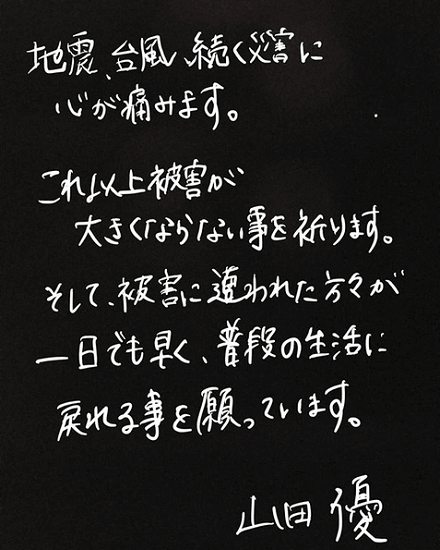 地震、台風、続く災害に
心が痛みます。
これ以上被害が
大きくならない事を祈ります。
そして、被害に遭われた方々が
一日でも早く、普段の生活に
戻れる事を願っています。
山田優